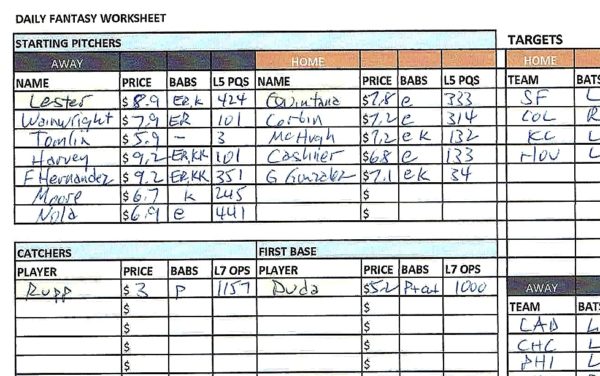 DAILY FANTASY WORKSHEET
STARTING PITCHERS TARGETS
AWAY HOME HOME
NAME PRICE BABS L5 PQS NAME PRICE BABS L5 PQS TEAM BATS
Lester $8.9 ER,K 424 Quintana $7.8 e 333 SF L
Wainwright $7.9 ER 101 Corbin $7.2 e 314 COL R
Tomlin $5.9 - 3 McHugh $7.2 e k 132 KC L
Harvey $9.2 ER,KK 101 Cashner $6.8 e 133 HOU L
F Hernandez $9.2 ER,KK 351 G Gonzalez $7.1 ek 34
Moore $6.7 k 245 $
Nola $6.9 e 441 $
CATCHERS FIRST BASE
PLAYER PRICE BABS L7 OPS PLAYER PRICE BABS L7 OPS
Rupp $3 P 1157 Duda $5.2 1000 AWAY
$ $ TEAM BATS
$ $ LAD L
$ $ CHC L
$ $ PHI L